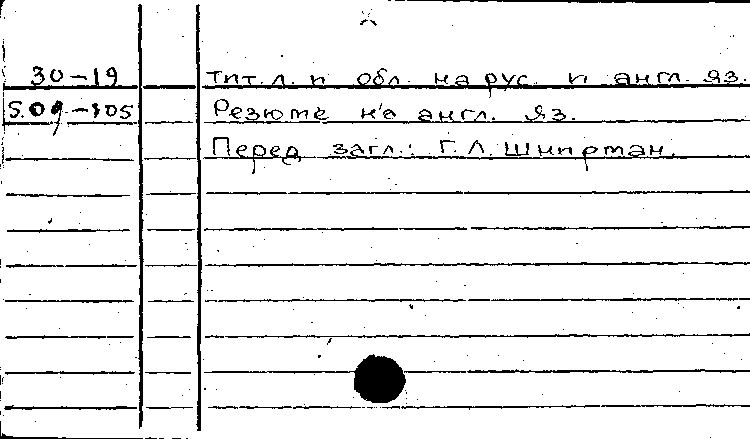 30-19 Тит. л. и обл. на рус. и англ. яз.
5.09-105 Резюме на англ. яз.
Перед загл.: Г. Л. Шпирман.